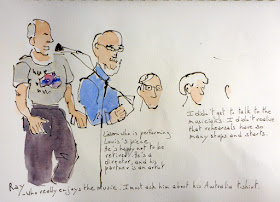 Liam who is performing
Louis's piece.
He's happy not to be
retired. He is a
director, and his
partner is an artist
I didn't get to talk to the
musicians. I didn't realise
that rehearsals have so
many stops and starts.
Ray
who really enjoys the music. I must ask him about his Australia tshirt.